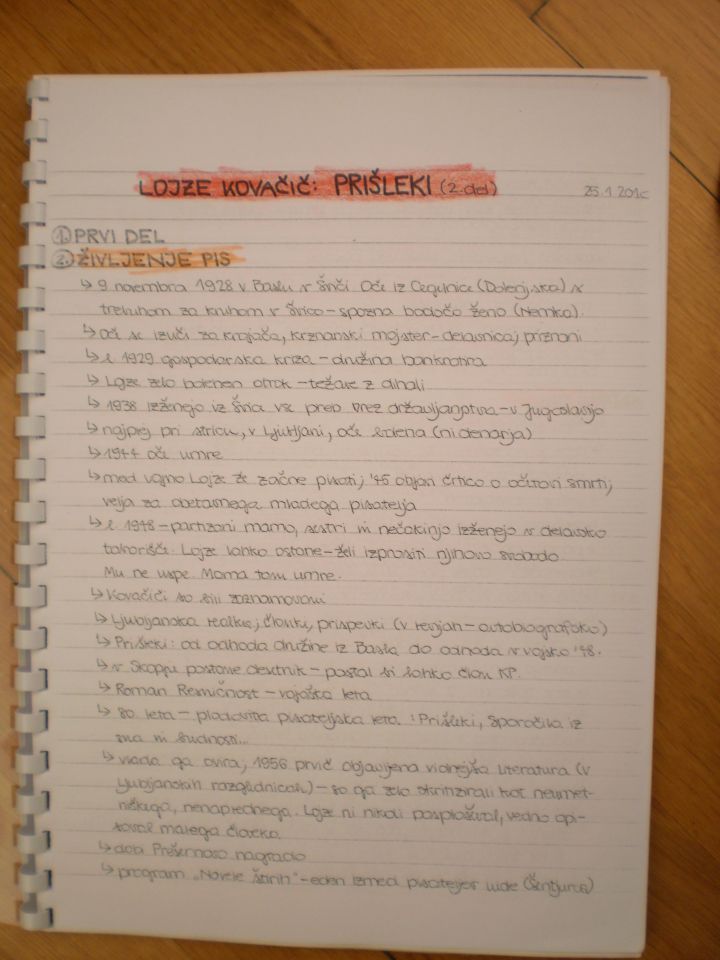 LOJZE KOVAČIČ: PRIŠLEKI (2.del)
25.1.201
1. PRVI DEL
2. ŽIVLJENJE PIS
↳ 9 novembra 1928 v Baslu v Švici. Oče iz Cegelnice (Dolenjska) s
trebuhom za kruhom v Švico – spozna bodočo ženo (Nemka).
↳ Oče se izuči za krojača, krznarski mojster – delavnica, priznan
↳ l. 1929 gospodarska kriza – družina bankrotira
↳ Lojze zelo bolehen otrok – težave z dihali
↳ 1938 izženejo iz Švice vse prep brez državljanstva – v Jugoslavijo
↳ najprej pri stricu, v Ljubljani, oče (ni denarja)
↳ 1944 oče umre
↳ med vojno Lojze že začne pisati, '45 objavi črtico o očetovi smrti,
velja za obetavnega mladega pisatelja
↳ l. 1948 – partizani mamo, sestri in nečakinjo izženejo v delavsko
taborišče. Lojze lahko ostane – želi izprositi njihovo svobodo
Mu ne uspe. Mama tam umre.
↳ Kovačiči so bili zaznamovani
↳ Ljubljanska realka, članki, prispevki (v revijah – avtobiografsko)
↳ Prišleki: od odhoda družine iz Basla do odhoda v vojsko '48.
↳ v Skopju postane – postal bi lahko član KP.
↳ Roman Resničnost – vojaška leta
↳ 80 leta – plodovita pisateljska leta: Prišleki, Sporočila iz
sna in budnosti...
↳ vlada ga ovira, 1956 prvič objavljena literatura (v
Ljubljanskih razglednicah) – so ga zelo skritizirali kot neumet-
niškega, nenaprednega. Lojze ni nikoli posploševal, vedno opi-
soval malega človeka.
↳ dobi Prešernovo nagrado
↳ program „Novele štirih" – eden izmed pisateljev (Šentjurc)